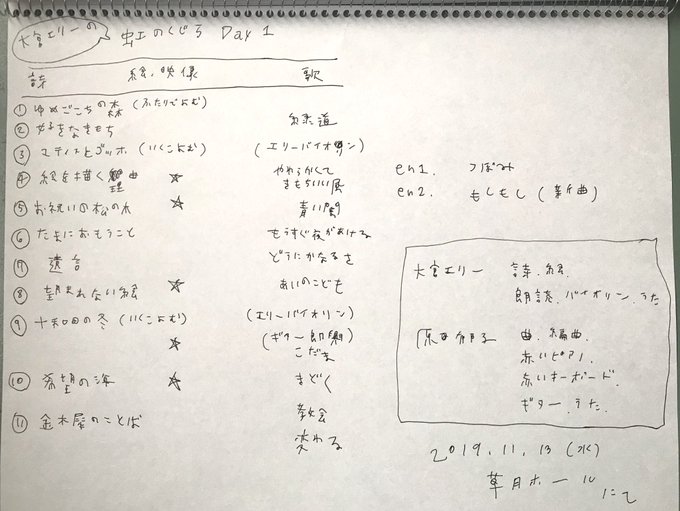 大宮エリーの 虹のくじら Day 1
詩 絵、映像 歌
① ゆめごこちの森 (ふたりでよむ)
絲道
② 好きなきもち
③ マティスとゴッホ (いくこよむ) (エリーバイオリン)
④ 絵を描く理由 ☆ やわらかくて
きもちいい風
⑤ お祝いの松の木 ☆ 青い闇
⑥ たまにおもうこと もうすぐ夜があける
⑦ 遺言 どうにかなるさ
⑧ 望まれない絵 ☆ あいのこども
⑨ 十和田の冬 (いくこよむ) (エリーバイオリン)
☆ (ギター即興)
こだま
⑩ 希望の海 ☆ まどく
⑪ 金木犀のことば 教会
変わる
en1. つぼみ
en2. もしもし (新曲)
大宮エリー 詩、絵
朗読、バイオリン、うた
原田郁子 曲、編曲、
赤いピアノ、
赤いキーボード、
ギター、うた、
2019.11.13 (水)
草月ホール
にて